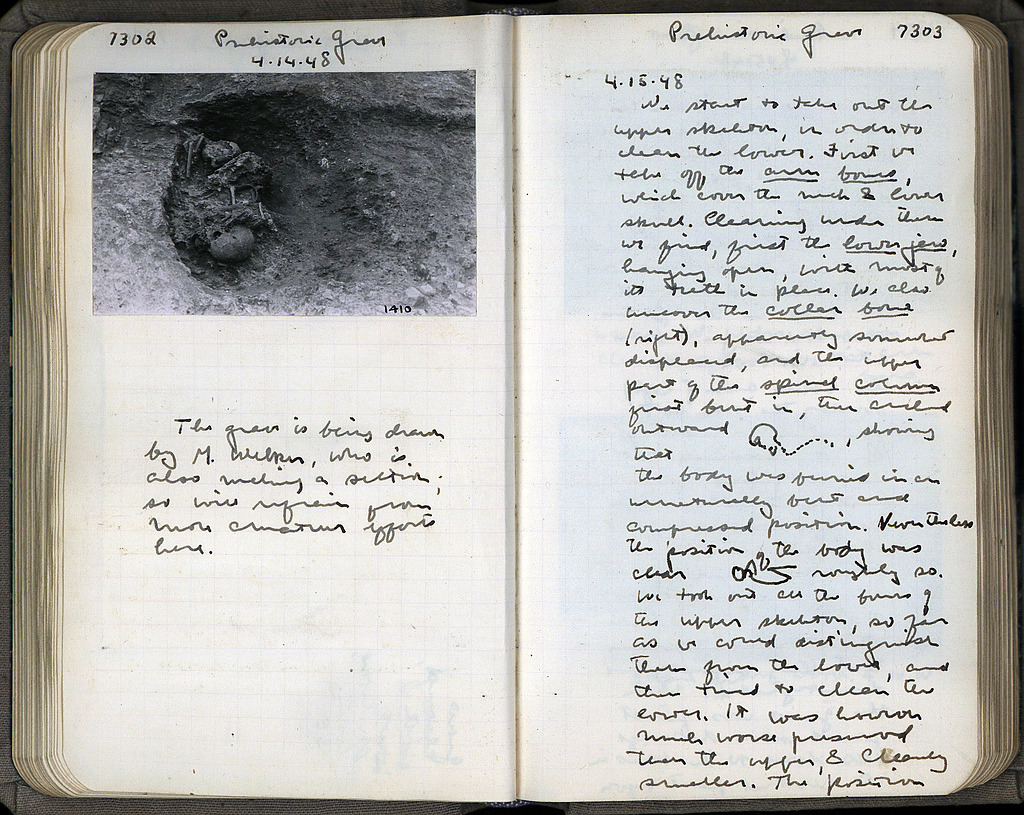 7302
Prehistoric Grave
4.14.48
1410
The grave is being drawn
by M. Welker, who is
also making a section,
so will refrain from
more amateur efforts
here.
Prehistoric Grave
7303
4.15.48
We start to take out the
upper skeleton, in order to
clean the lower. First we
take off the arm bones,
which cover the neck & lower
skull. Cleaning under them
we find, first the lower jaw,
hanging open, with most of
its teeth in place. We also
uncover the collar bone
(right), apparently somewhat
displaced, and the upper
part of the spinal column
first bent in, then arched
outward , showing
that
the body was buried in an
unnaturally bent and
compressed position. Nevertheless
the position of the body was
clear roughly so.
We took out all the bones of
the upper skeleton, so far
as we could distinguish
them from the lower, and
then tried to clean the
lower. It was however
much worse preserved
than the upper, & clearly
smaller. The position